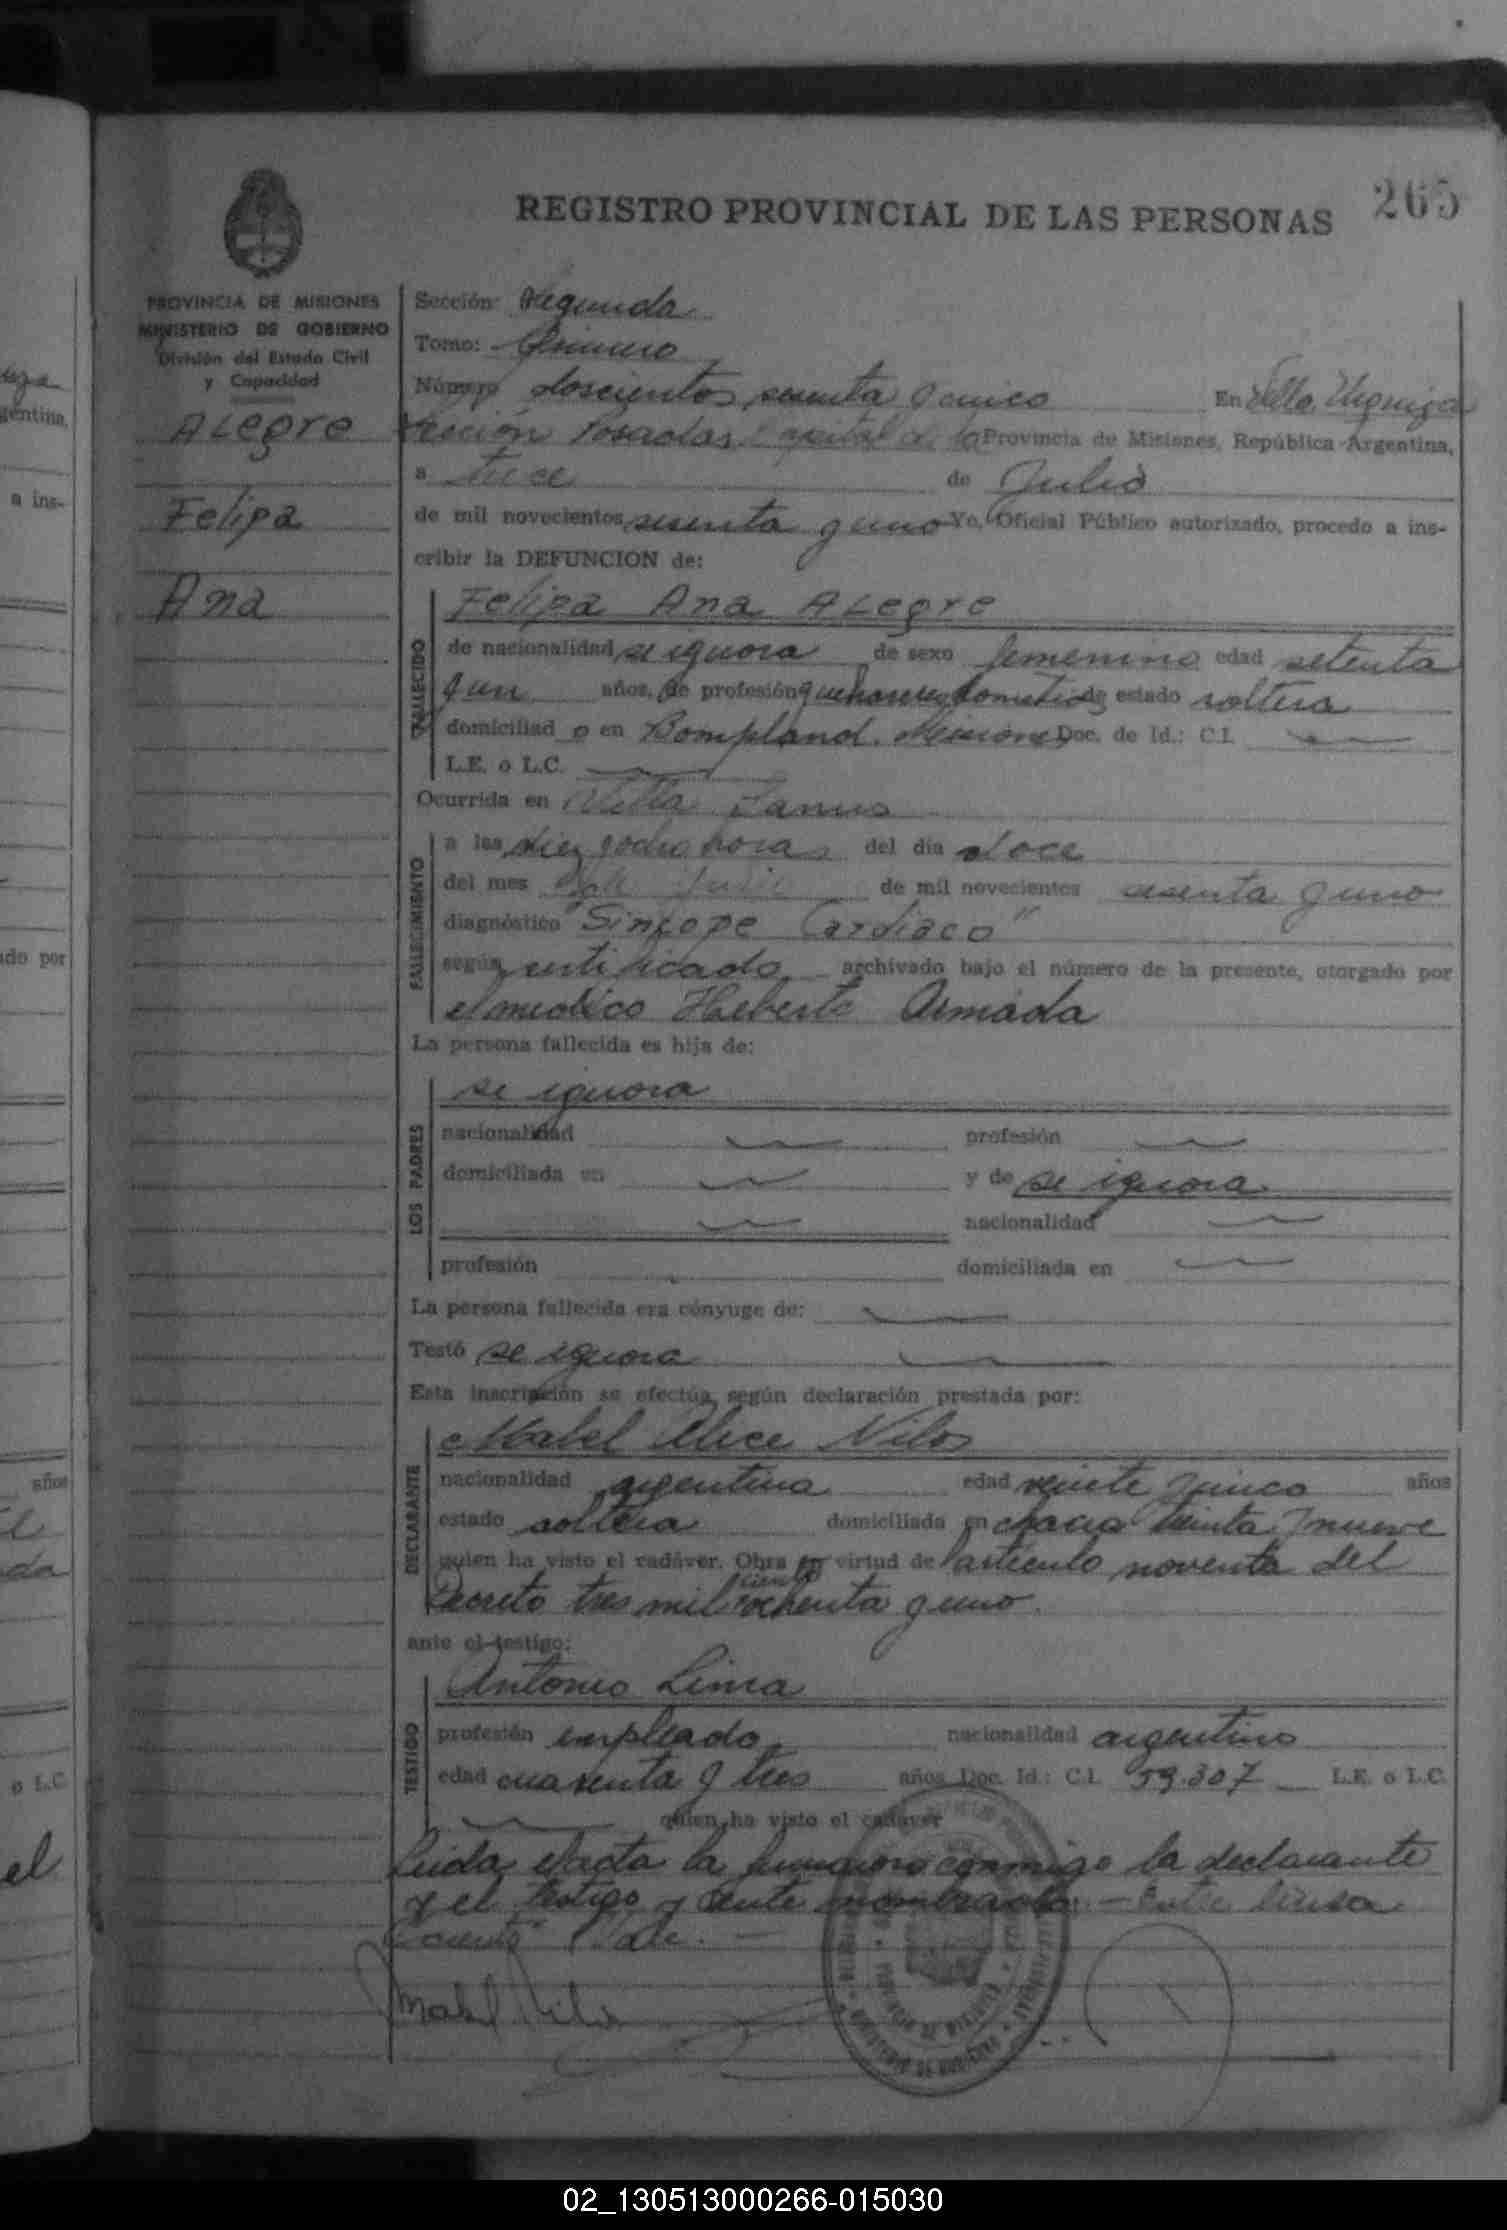 265
REGISTRO PROVINCIAL DE LAS PERSONAS
PROVINCIA DE MISIONES
MINISTERIO DE GOBIERNO
División del Estado Civil
y Capacidad
ALegre
Felipa
Ana
Sección: Segunda
Tomo: Primero
Número doscientos sesenta y cinco En Villa Urquiza
Sección Posadas Capital de la Provincia de Misiones, República Argentina,
a trece de Julio
de mil novecientos sesenta y uno Yo, Oficial Público autorizado, procedo a ins-
cribir la DEFUNCION de:
FALLECIDO
Felipa Ana ALegre
de nacionalidad se ignora de sexo femenino edad setenta
y un años, de profesión quehaceres domesticos de estado soltera
domiciliad o en Bompland. Misiones Doc. de Id.: C.I.
L.E. o L.C.
Ocurrida en Villa Lanus
FALLECIMIENTO
a las diez y ocho horas del día doce
del mes de Julio de mil novecientos sesenta y uno
diagnóstico "Sincope Cardiaco"
según certificado archivado bajo el número de la presente, otorgado por
el medico Heberto Armada
La persona fallecida es hija de:
LOS PADRES
se ignora
nacionalidad profesión
domiciliada en y de se ignora
nacionalidad
profesión domiciliada en
La persona fallecida era cónyuge de:
Testó se ignora
Esta inscripción se efectúa según declaración prestada por:
DECLARANTE
Mabel Alice Nilos
nacionalidad argentina edad veinte y cinco años
estado soltera domiciliada en chacra treinta y nueve
quien ha visto el cadáver. Obra en virtud de l artículo noventa del
Decreto tres mil ciento ochenta y uno.
ante el testigo:
TESTIGO
Antonio Lima
profesión empleado nacionalidad argentino
edad cuarenta y tres años Doc. Id.: C.I. 59.307 L.E. o L.C.
quien ha visto el cadáver
Leida el acta la firmaron conmigo la declarante
y el testigo y ante nombrados. - Entre linea
"ciento" Vale. -
Mabel Nilos
PROVINCIA DE MISIONES
MINISTERIO DE GOBIERNO
02_130513000266-015030